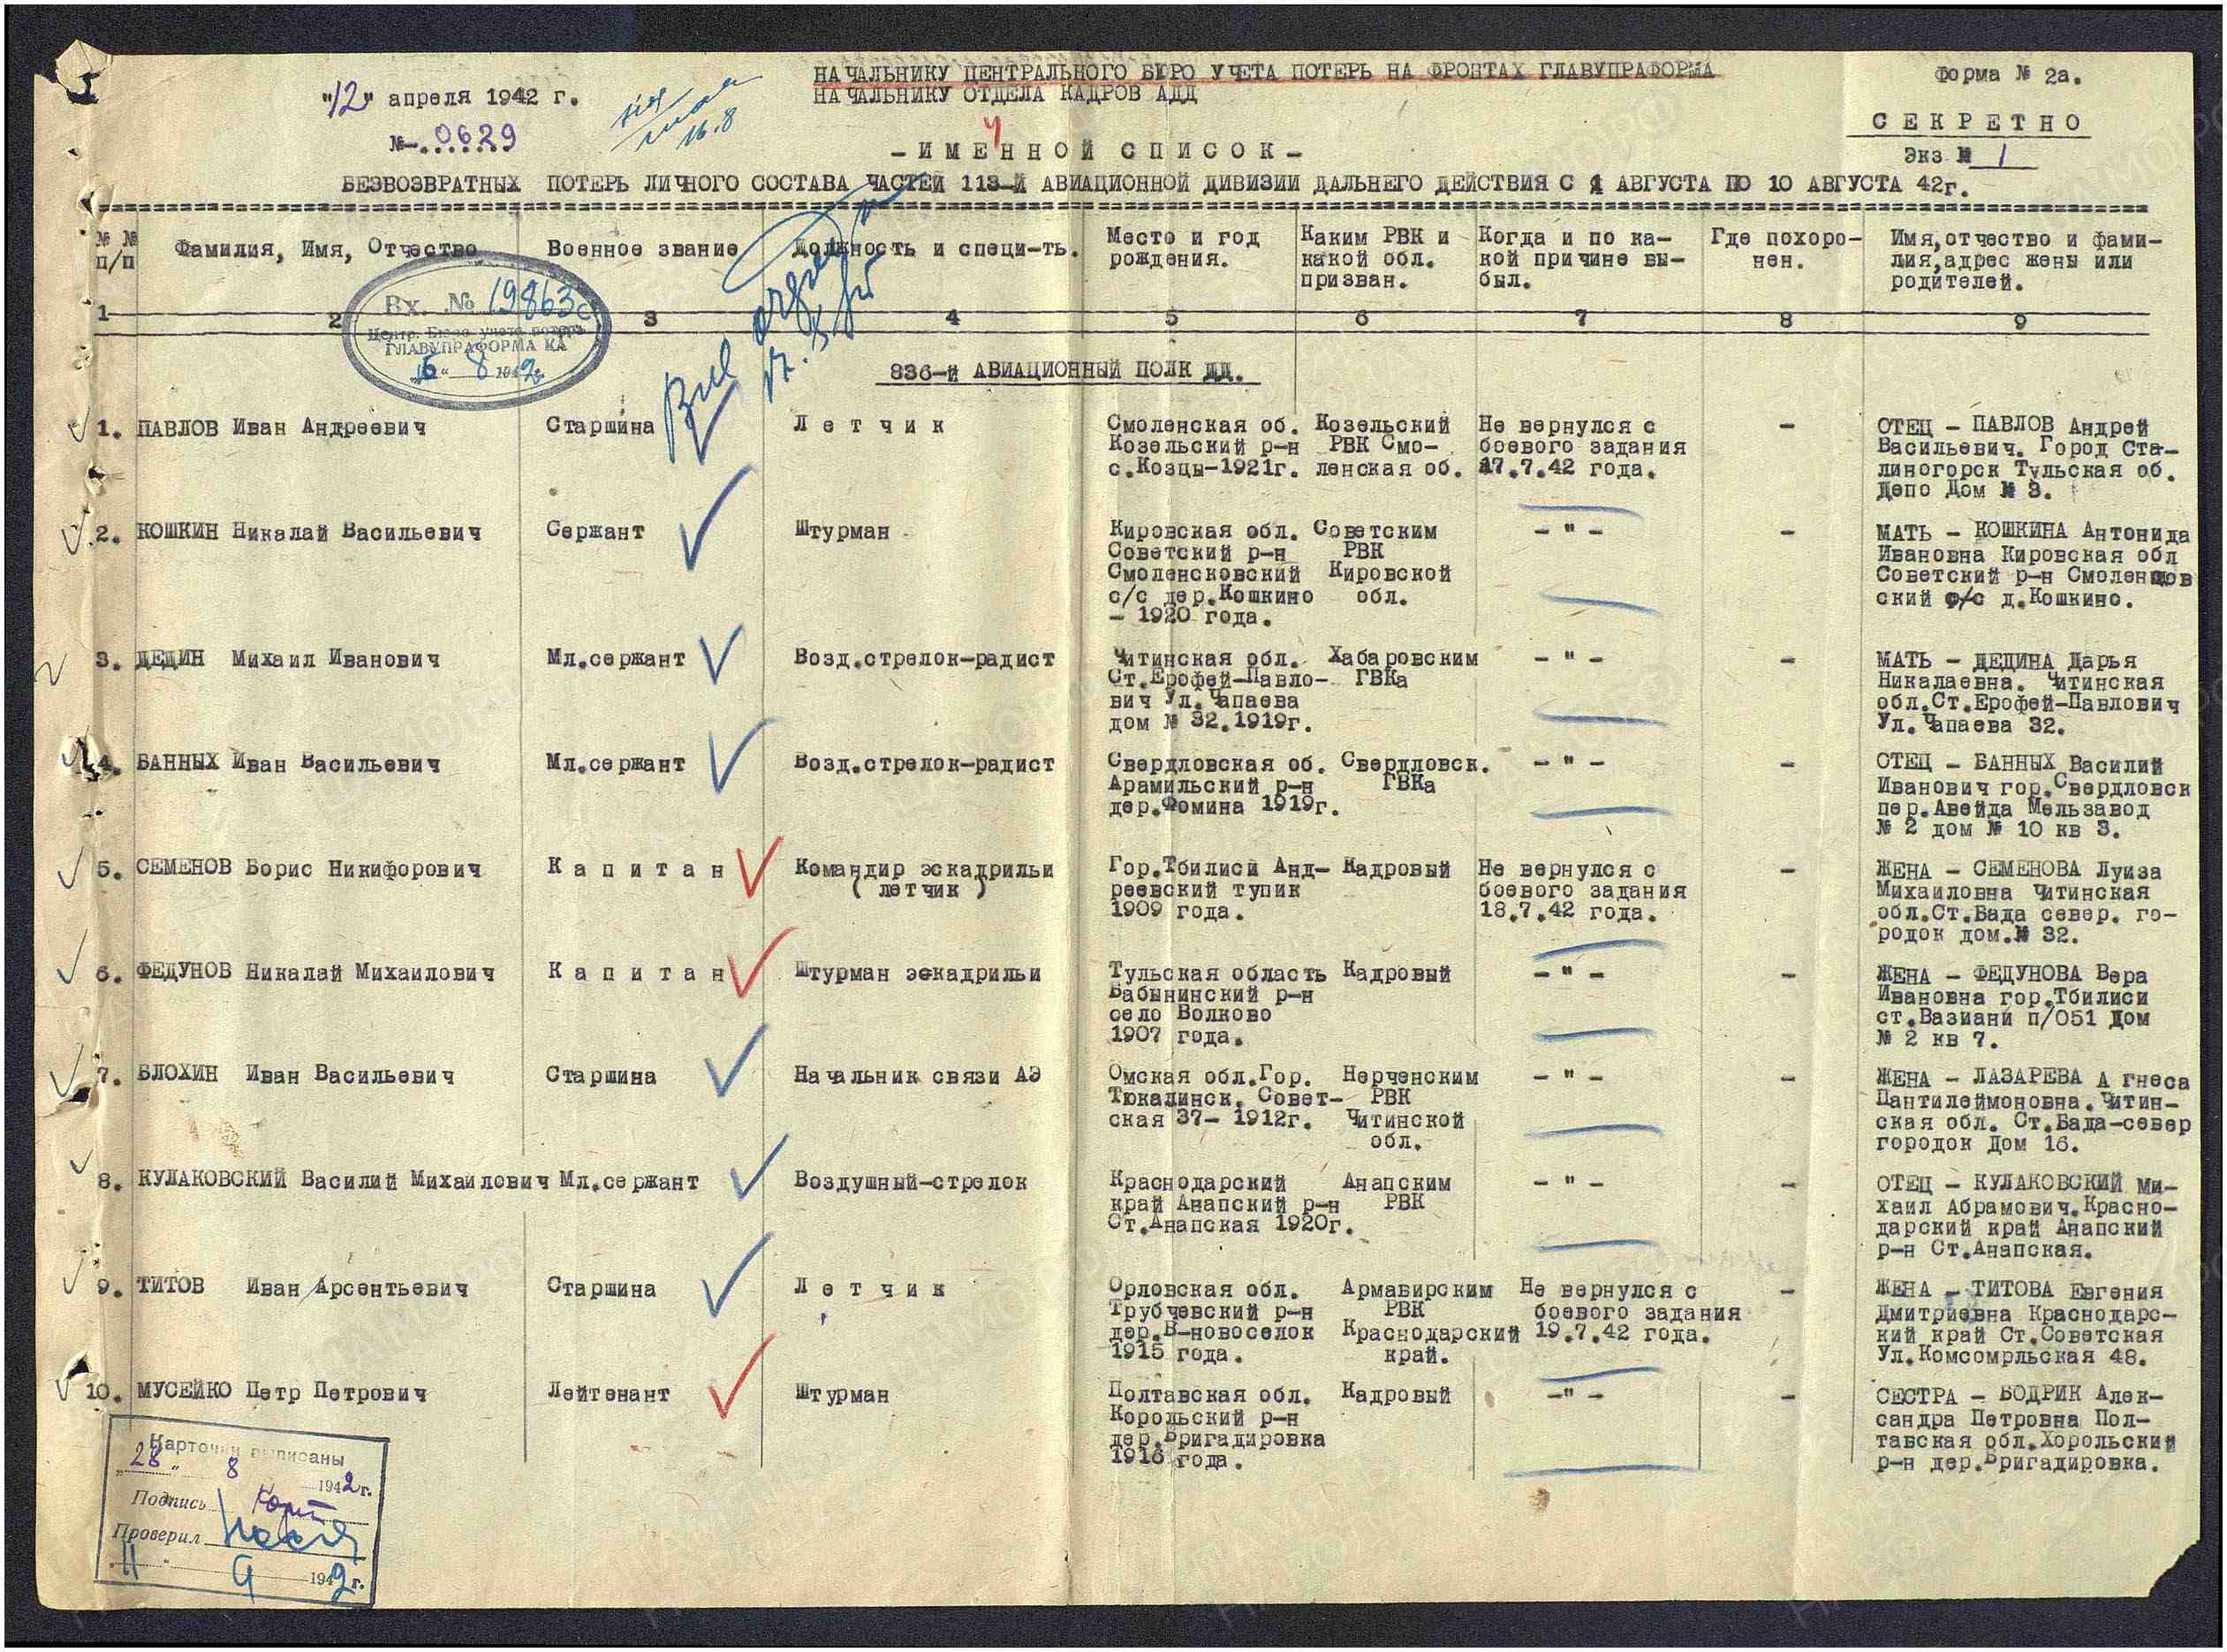 НАЧАЛЬНИКУ ЦЕНТРАЛЬНОГО БЮРО УЧЕТА ПОТЕРЬ НА ФРОНТАХ ГЛАВУПРАФОРМА
НАЧАЛЬНИКУ ОТДЕЛА КАДРОВ АДД
Форма № 2а.
"12" апреля 1942 г.
№ 0629
16.8
СЕКРЕТНО
Экз № 1
-ИМЕННОЙ СПИСОК-
БЕЗВОЗВРАТНЫХ ПОТЕРЬ ЛИЧНОГО СОСТАВА ЧАСТЕЙ 113-Й АВИАЦИОННОЙ ДИВИЗИИ ДАЛЬНЕГО ДЕЙСТВИЯ С 1 АВГУСТА ПО 10 АВГУСТА 42г.
№ № п/п
Фамилия, Имя, Отчество
Военное звание
Должность и специ-ть.
Место и год
рождения.
Каким РВК и
какой обл.
призван.
Когда и по ка-
кой причине вы-
был.
Где похоро-
нен.
Имя,отчество и фами-
лия,адрес жены или
родителей.
1 2 3 4 5 6 7 8 9
Вх. № 19863с
Центр. Бюро учета потерь
ГЛАВУПРАФОРМА КА
"16" 8 1942г.
836-й АВИАЦИОННЫЙ ПОЛК ДД.
1. ПАВЛОВ Иван Андреевич
Старшина
Летчик
Смоленская об.
Козельский р-н
с.Козцы-1921г.
Козельский
РВК Смо-
ленская об.
Не вернулся с
боевого задания
17.7.42 года.
-
ОТЕЦ - ПАВЛОВ Андрей
Васильевич. Город Ста-
линогорск Тульская об.
Депо Дом № 3.
2. КОШКИН Никалай Васильевич
Сержант
Штурман
Кировская обл.
Советский р-н
Смоленсковский
с/с дер.Кошкино
- 1920 года.
Советским
РВК
Кировской
обл.
- " -
-
МАТЬ - КОШКИНА Антонида
Ивановна Кировская обл
Советский р-н Смоленцов
ский с/с д.Кошкино.
3. ДЕДИН Михаил Иванович
Мл.сержант
Возд.стрелок-радист
Читинская обл.
Ст.Ерофей-Павло-
вич Ул.Чапаева
дом № 32.1919г.
Хабаровским
ГВКа
- " -
-
МАТЬ - ДЕДИНА Дарья
Никалаевна. Читинская
обл.Ст.Ерофей-Павлович
Ул.Чапаева 32.
4. БАННЫХ Иван Васильевич
Мл.сержант
Возд.стрелок-радист
Свердловская об.
Арамильский р-н
дер.Фомина 1919г.
Свердловск.
ГВКа
- " -
-
ОТЕЦ - БАННЫХ Василий
Иванович гор.Свердловск
пер.Авейда Мельзавод
№ 2 дом № 10 кв 3.
5. СЕМЕНОВ Борис Никифорович
Капитан
Командир эскадрильи
( летчик )
Гор.Тбилиси Анд-
реевский тупик
1909 года.
Кадровый
Не вернулся с
боевого задания
18.7.42 года.
-
ЖЕНА - СЕМЕНОВА Луиза
Михаиловна Читинская
обл.Ст.Бада север. го-
родок дом.№ 32.
6. ФЕДУНОВ Никалай Михаилович
Капитан
Штурман эскадрильи
Тульская область
Бабынинский р-н
село Волково
1907 года.
Кадровый
- " -
-
ЖЕНА - ФЕДУНОВА Вера
Ивановна гор.Тбилиси
ст.Вазиани п/051 Дом
№ 2 кв 7.
7. БЛОХИН Иван Васильевич
Старшина
Начальник связи АЭ
Омская обл.Гор.
Тюкалинск. Совет-
ская 37- 1912г.
Нерченским
РВК
Читинской
обл.
- " -
-
ЖЕНА - ЛАЗАРЕВА Агнеса
Пантилеймоновна.Читин-
ская обл. Ст.Бада-север
городок Дом 16.
8. КУЛАКОВСКИЙ Василий Михаилович
Мл.сержант
Воздушный-стрелок
Краснодарский
край Анапский р-н
Ст.Анапская 1920г.
Анапским
РВК
- " -
-
ОТЕЦ - КУЛАКОВСКИЙ Ми-
хаил Абрамович.Красно-
дарский край Анапский
р-н Ст.Анапская.
9. ТИТОВ Иван Арсентьевич
Старшина
Летчик
Орловская обл.
Трубчевский р-н
дер.В-новоселок
1915 года.
Армавирским
РВК
Краснодарский
край.
Не вернулся с
боевого задания
19.7.42 года.
-
ЖЕНА - ТИТОВА Евгения
Дмитриевна Краснодарс-
кий край Ст.Советская
Ул.Комсомрльская 48.
10. МУСЕЙКО Петр Петрович
Лейтенант
Штурман
Полтавская обл.
Корольский р-н
дер.Бригадировка
1916 года.
Кадровый
-"-
-
СЕСТРА - БОДРИК Алек-
сандра Петровна Пол-
тавская обл.Хорольский
р-н дер.Бригадировка.
Карточки выписаны
"28" 8 1942г.
Подпись
Проверил
"11" 9 1942г.